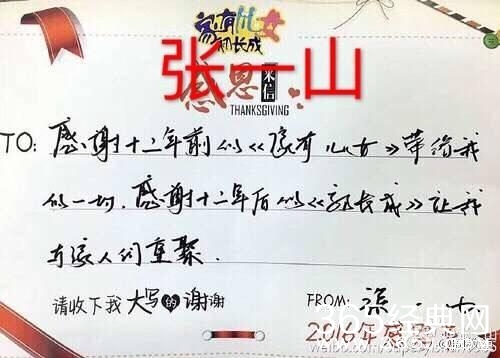 家有儿女
初长成
张一山
感恩
来信
THANKSGIVING
TO: 感谢十二年前的《家有儿女》带给我
的一切,感谢十二年后的《初长成》让我
与家人们重聚.
请收下我大写的谢谢
FROM: 张一山
2016年感恩
经典网